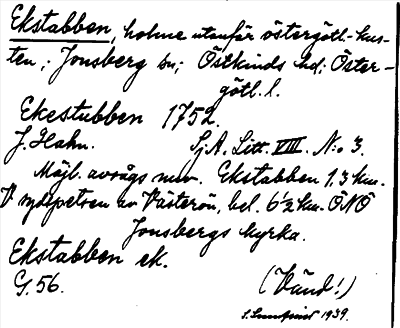 Ekstabben, holme utanför östergötl.-kus-
ten, i Jonsberg sn; Östkinds hd; Öster-
götl. l.
Ekestubben 1752.
J. Hahn. Sj.A. Litt. VIII. N:o 3.
Möjl. avsågs nuv. Ekstabben 1,3 km.
V sydspetsen av Västerön, bel. 6½ km. ÖNÖ
Jonsbergs kyrka.
Ekstabben ek.
G. 56. (Vänd!)
S. 1939.